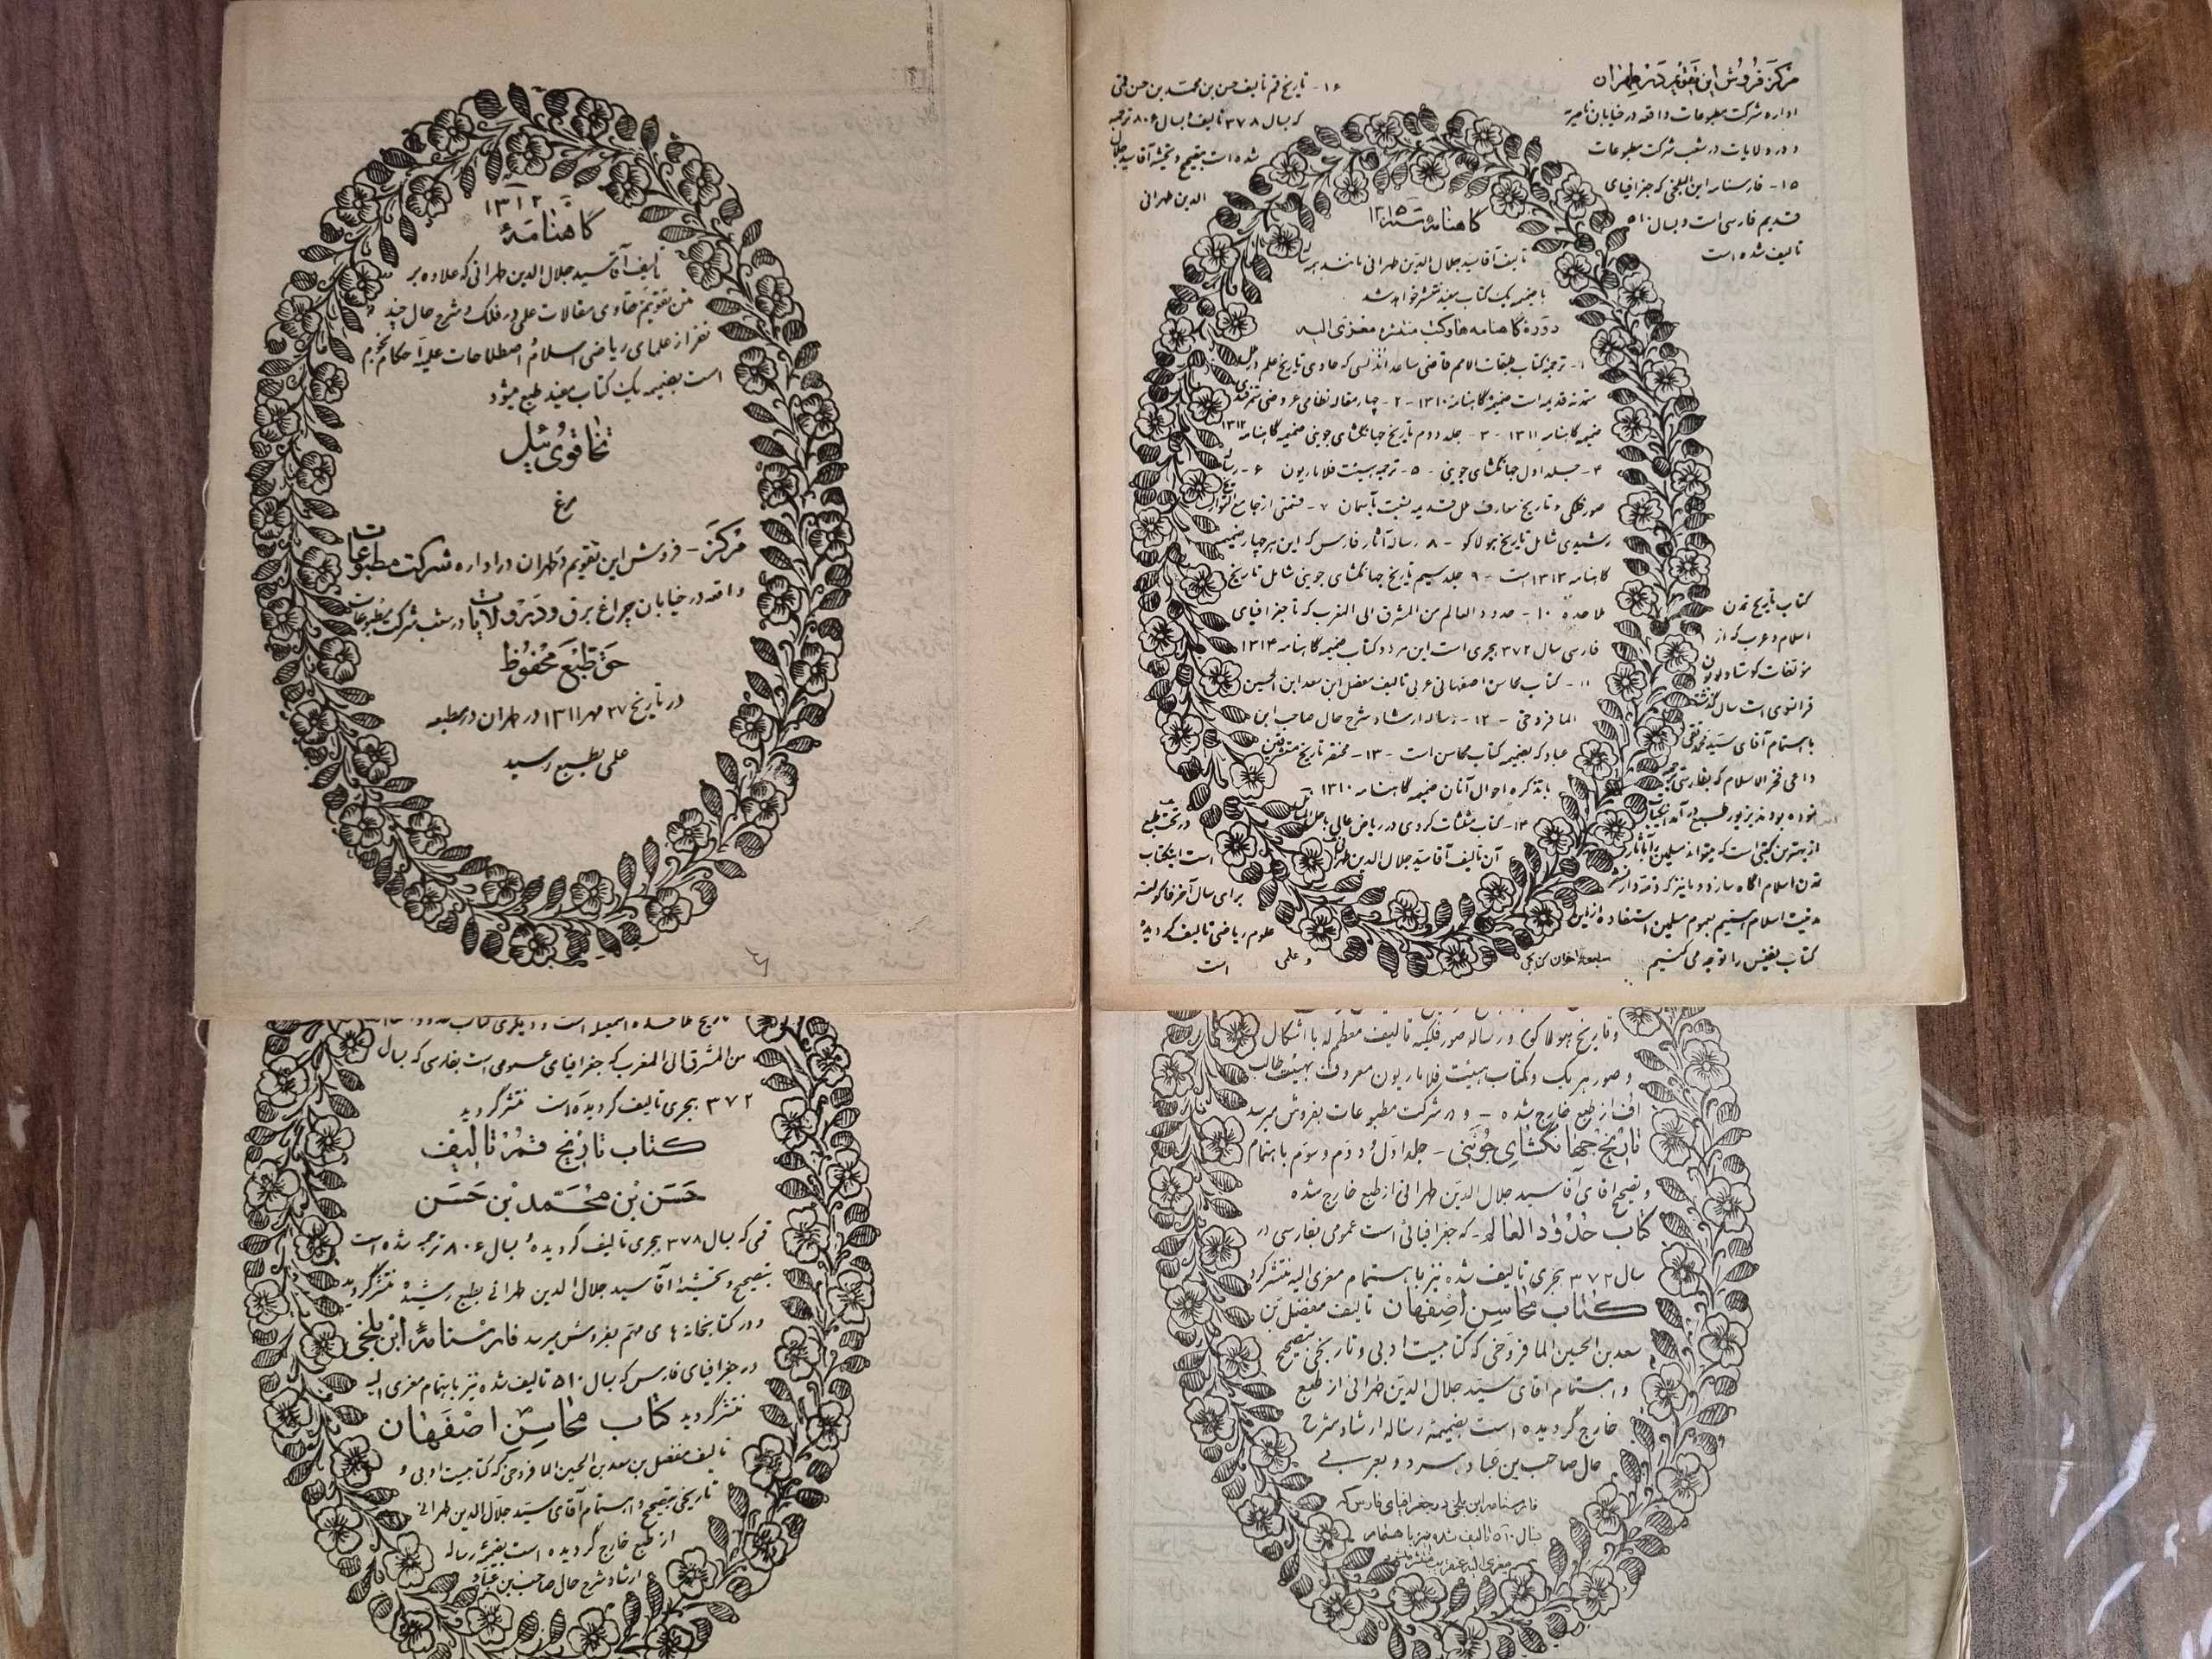 ۱۳۱۲
گاهنامهٔ
تألیف آقا سید جلال الدین طهرانی که علاوه بر
متن تقویم حاوی مقالات علمی در فلک و شرح حال چند
نفر از علمای ریاضی اسلام و اصطلاحات علمیه احکام نجوم
است بضمیمه یک کتاب مفید طبع میشود
تخاقوی ئیل
مرغ
مرکز - فروش این تقویم در طهران در اداره شرکت مطبوعات
واقعه در خیابان چراغ برق و در ولایات در شعب شرکت مطبوعات
حق طبع محفوظ
در تاریخ ۲۷ مهر ۱۳۱۱ در طهران در مطبعه
علمی بطبع رسید
مرکز فروش این تقویم در طهران
اداره شرکت مطبوعات واقعه در خیابان ناصریه
و در ولایات در شعب شرکت مطبوعات
۱۵ - فارسنامه ابن البلخی که جغرافیای
قدیم فارسی است و بسال ۵۱۰
تالیف شده است
۱۶ - تاریخ قم تالیف حسن بن محمد بن حسن قمی
که بسال ۳۷۸ تالیف و بسال ۸۰۶ ترجمه
شده است بتصحیح و تحشیه آقا سید جلال
الدین طهرانی
گاهنامه ۱۳۱۵
تألیف آقا سید جلال الدین طهرانی مانند هر سال
با ضمیمه یک کتاب مفید منتشر خواهد شد
دوره گاهنامه ها و کتب منتشره معزی الیه
۱ - ترجمه کتاب طبقات الامم قاضی صاعد اندلسی که حاوی تاریخ علم در ملل
متمدنه قدیمه است ضمیمه گاهنامه ۱۳۱۰ - ۲ - چهار مقاله نظامی عروضی سمرقندی
ضمیمه گاهنامه ۱۳۱۱ - ۳ - جلد دوم تاریخ جهانگشای جوینی ضمیمه گاهنامه ۱۳۱۲
۴ - جلد اول جهانگشای جوینی - ۵ - ترجمه هیئت فلاماریون ۶ - رساله
صور فلکی و تاریخ معارف ملل قدیمه نسبت بآسمان ۷ - قسمتی از جامع التواریخ
رشیدی شامل تاریخ هولاکو - ۸ رساله آثار فارس که این هر چهار ضمیمه
گاهنامه ۱۳۱۳ است - ۹ جلد سیم تاریخ جهانگشای جوینی شامل تاریخ
ملاحده ۱۰ - حدود العالم من المشرق الی المغرب که تا جغرافیای
فارسی سال ۳۷۲ هجری است این هر دو کتاب ضمیمه گاهنامه ۱۳۱۴
۱۱ - کتاب محاسن اصفهانی عربی تالیف مفضل ابن سعد ابن الحسین
المافروخی - ۱۲ - رساله ارشاد و شرح حال صاحب ابن
عباد که بضمیمه کتاب محاسن است - ۱۳ - مختصر تاریخ
با تذکره احوال آنان ضمیمه گاهنامه ۱۳۱۰
۱۴ - کتاب مثلثات کروی در ریاض عالی با حل المسائل
آن تالیف آقا سید جلال الدین طهرانی
در تحت طبع
است اینکتاب
برای سال آخر فاکولته
علوم ریاضی تالیف گردیده
و علمی
است
کتاب تاریخ تمدن
اسلام و عرب که از
مؤلفات گوستاو لوبون
فرانسوی است سال گذشته
باهتمام آقای سید محمد تقی
داعی فخر الاسلام که بفارسی ترجمه
نموده بودند بزیور طبع در آمد اینکتاب
از بهترین کتبی است که میتواند مسلمین را بآثار
تمدن اسلام آگاه سازد و ما نیز که
مدنیت اسلام هستیم بعموم مسلمین استفاده از این
کتاب نفیس را توجه می کنیم
مطبعه اخوان کتابچی
من المشرق الی المغرب که جغرافیای عمومی است بفارسی که بسال
۳۷۲ هجری تالیف گردیده است منتشر گردید
کتاب تاریخ قم تالیف
حسن بن محمد بن حسن
قمی که بسال ۳۷۸ هجری تالیف گردیده و بسال ۸۰۶ ترجمه شده است
بتصحیح و تحشیه آقا سید جلال الدین طهرانی بطبع رسیده منتشر گردید
و در کتابخانه های مهم بفروش میرسد فارسنامهٔ ابن بلخی
در جغرافیای فارس که بسال ۵۱۰ تالیف شده نیز باهتمام معزی الیه
منتشر گردید کتاب محاسن اصفهان
تالیف مفضل بن سعد بن الحسین المافروخی که کتابیست ادبی و
تاریخی بتصحیح و اهتمام آقای سید جلال الدین طهرانی
از طبع خارج گردیده است بضمیمه رساله
ارشاد و شرح حال صاحب بن عباد
و تاریخ هولاکو و رساله صور فلکیه تألیف معظم له با اشکال
و صور هر یک و کتاب هیئت فلاماریون معروف بهیئت
از طبع خارج شده - و در شرکت مطبوعات بفروش میرسد
تاریخ جهانگشای جوینی - جلد اول و دوم و سوم باهتمام
و تصحیح آقای آقا سید جلال الدین طهرانی از طبع خارج شده
کتاب حدود العالم - که جغرافیائی است عمومی بفارسی در
سال ۳۷۲ هجری تألیف شده نیز باهتمام معزی الیه منتشر گردید
کتاب محاسن اصفهان تألیف مفضل بن
سعد بن الحسین المافروخی که کتابیست ادبی و تاریخی بتصحیح
و اهتمام آقای سید جلال الدین طهرانی از طبع
خارج گردیده است بضمیمه رساله ارشاد بشرح
حال صاحب بن عباد
فارسنامه ابن بلخی در جغرافیای فارس که
بسال ۵۱۰ تالیف شده نیز باهتمام